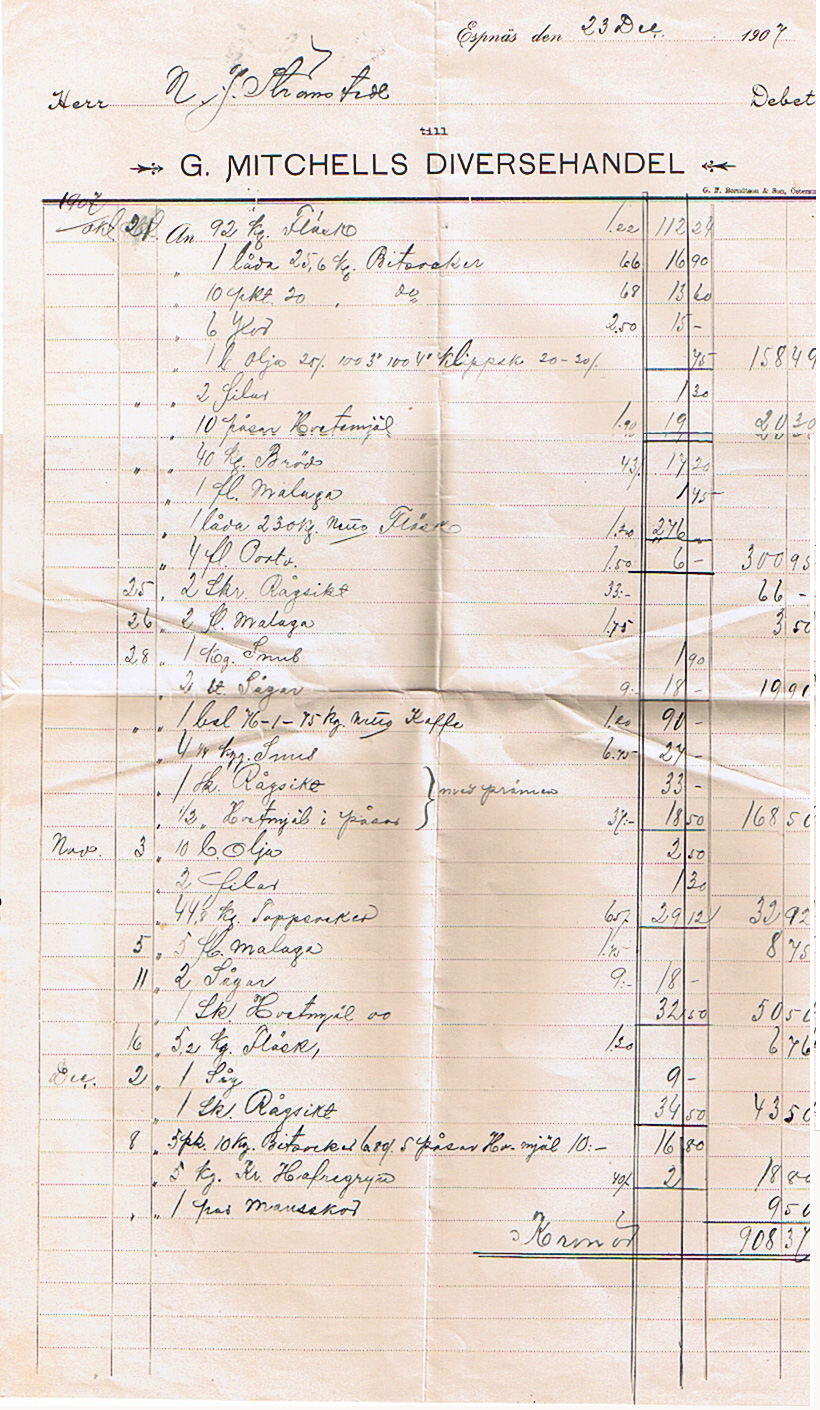 Espnäs den 23 Dec. 1907
Herr N. J. Strömstedt Debet
till
G. MITCHELLS DIVERSEHANDEL
1907
okt. 21 An 92 kg. Fläsk 1.22 112 24
" 1 låda 25,6 kg. Bitsocker 66 16 90
" 10 pkt. 20 " do 68 13 60
" 6 2.50 15 -
" 1 l olja 25/. 100 3" 100 4" Klippsk 20-30/. 75 158 49
" " 2 filar 1 30
" 10 påsar Hvetemjöl 1.90 19 20 30
" " 40 kg. Bröd 43/. 17 20
" 1 fl. Malaga 1 75
" 1 låda 230 kg. netto Fläsk 1.20 276 -
" 4 fl. Porto. 1.50 6 - 300 95
25 " 2 Skr. Rågsikt 33.- 66 -
26 " 2 fl. Malaga 1.75 3 50
28 " 1 kg. Snus 1 90
" 2 st. Sågar 9.- 18 - 19 90
" " 1 bal 76-1-75 kg. netto Kaffe 1.20 90 -
" 4 kg. Snus 6.75 27 -
" 1 sk. Rågsikt 33 -
" 1/2 " Hvetmjöl i påsar } med pråmen 37.- 18 50 168 50
Nov. 3 " 10 l. Olja 2 50
" 2 filar 1 30
" 44,8 kg. Toppsocker 65/. 29 12 32 92
5 " 5 fl. Malaga 1.75 8 75
11 " 2 Sågar 9.- 18 -
" 1 Sk. Hvetmjöl 00 32 50 50 50
16 " 5,2 kg. Fläsk, 1.30 6 76
Dec. 2 " 1 Såg 9 -
" 1 Sk. Rågsikt 34 50 43 50
8 " 5 pk. 10 kg. Bitsocker 6.80/. 5 påsar Hv. mjöl 10.- 16 80
" 5 kg. Kr. Hafregryn 40/. 2 18 80
" " 1 par Mansskor 9 50
Kronor 908 37